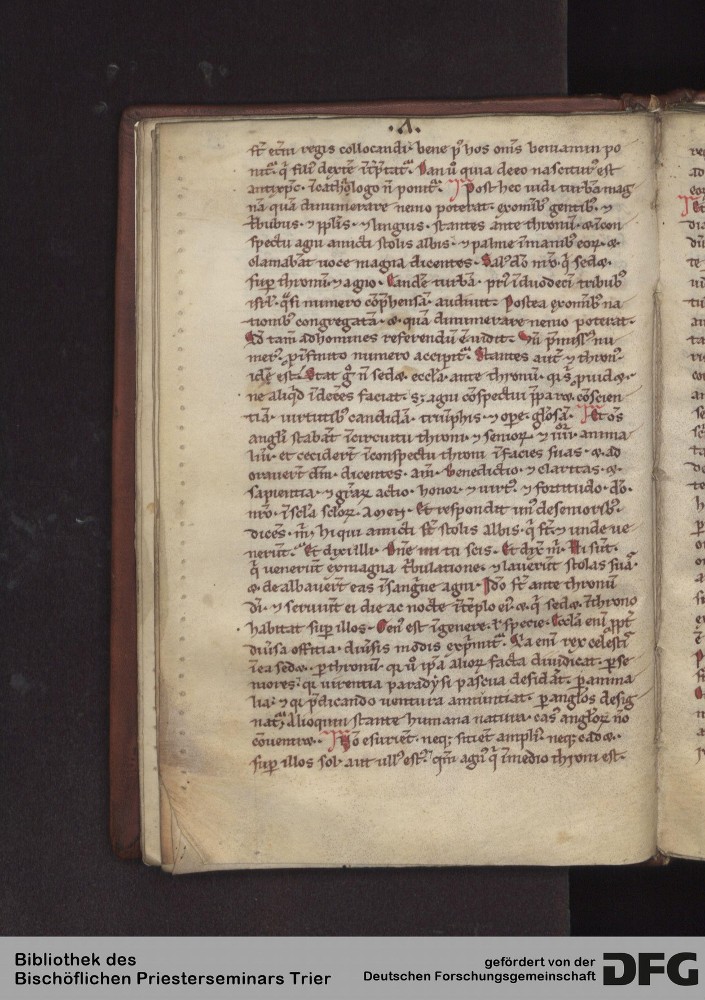 ·A·
st̄ etiā regis collocandi· bene p̄ hos om̄s beniamin po
nit᷑· q̄ fili᷒ dext̄e īt̄p̄tat᷑· Dan ū quia de eo nascitur᷒ est
antixp̄c· ī cathalogo n̄ ponit᷑· Post hec uidi turbā mag
nā quā dinumerare nemo poterat· ex omnib᷒ gentib᷒· ⁊
t̄bubus· ⁊ pplis· ⁊ linguis· stantes ante thronū· & ī con
spectu agni amicti stolis albis· ⁊ palme ī manib᷒ eoꝝ· &
clamabāt uoce magna dicentes· Sal᷒ dō nr̄o q̄ sed&
sup̄ thronū ⁊ agno· Eandē turbā· pri᷒ ī duodeci tribub᷒
isrl̄· q̄si numero cōp̄hensā· audiuit· Postea ex omnib᷒ na
tionib᷒ congregatā· & quā dinumerare nemo poterat·
Qđ tam̄ ad homines referendū ē
met᷒ p̄ infinito numero accipit᷑· Stantes aūt ⁊ thron᷒
idē est· Stat g° n̄ sed& eccl̄a ante thronū·
ne aliq̇d īdecēs faciat· sꝫ agni cōspectui p̄par& cōscien
tiā· uirtutib᷒ candidā· triūphis ⁊ ope glōsā· Et om̄s
angl̄i stabāt ī circuitu throni ⁊ senioꝝ ⁊ iiiior anima
liū· et cecider̄t ī conspectu throni ī facies suas· & ad
orauer̄t dm̄· dicentes· am̄· benedictio ⁊ claritas· &
sapientia· ⁊ gr̄aꝝ actio· honor ⁊ uirt᷒· ⁊ fortitudo· dō·
nr̄o· ī scl̄a scl̄oꝝ· amen· Et respondit un᷒ de seniorib᷒·
dicēs· m̄· hi qui amicti st̄ stolis albis· q̄ st̄· ⁊ unde ue
nerūt· Et dixi illi· Dn̄e mi tu scis· Et dix̄ m̄· Hi sūt·
q̄ uenerūt ex magna t̄bulatione· ⁊ lauerūt stolas suā·
& dealbauer̄t eas ī sangīne agni· Ido st̄ ante thronū
dī· ⁊ seruiūt ei die ac nocte ī tēplo ei᷒· & q̄ sed& ī throno
habitat sup̄ illos· Gen᷒ est ī genere· ł specie· Eccl̄a enī ppt̄
diūsa officia· diūsis modis exp̄mit᷑· enī rex celesti᷒
ī ea sed&· p̄ thronū· q ū ip̄a alioꝝ facta diiudicat· p̄ se
niores· q uirentia paradysi pascua desidāt· p̄ anima
lia· ⁊ q p̄dicando uentura annūtiat· p̄ angl̄os desig
nat᷑· Alioquin stante humana natura· cas᷒ angl̄oꝝ n̄o
cōuenir&· Nō esurient· neqꝫ sitient ampli᷒· neqꝫ cad&·
sup̄ illos sol· aut ull᷒ est᷒· qm̄ agn᷒ q̄ ī medio throni est·
Bibliothek des
Bischöflichen Priesterseminars Trier
gefördert von der
Deutschen Forschungsgemeinschaft
DFG